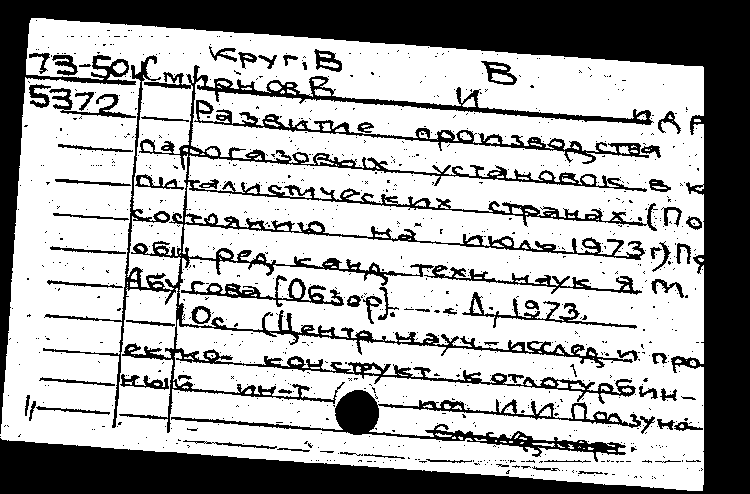 Круг, В В.
73-50к Смирнов, В И и др
5372 Развитие производства
парогазовых установок в к
питалистических странах. (По
состоянию на июль 1973 г) П
общ ред. канд. техн. наук Я М.
Абугова [Обзор]. Л., 1973.
10с. (Центр. науч-исслед. и про
ектно- конструкт. котлотурбин-
ный ин-т им И.И. Ползуно
См след карт.